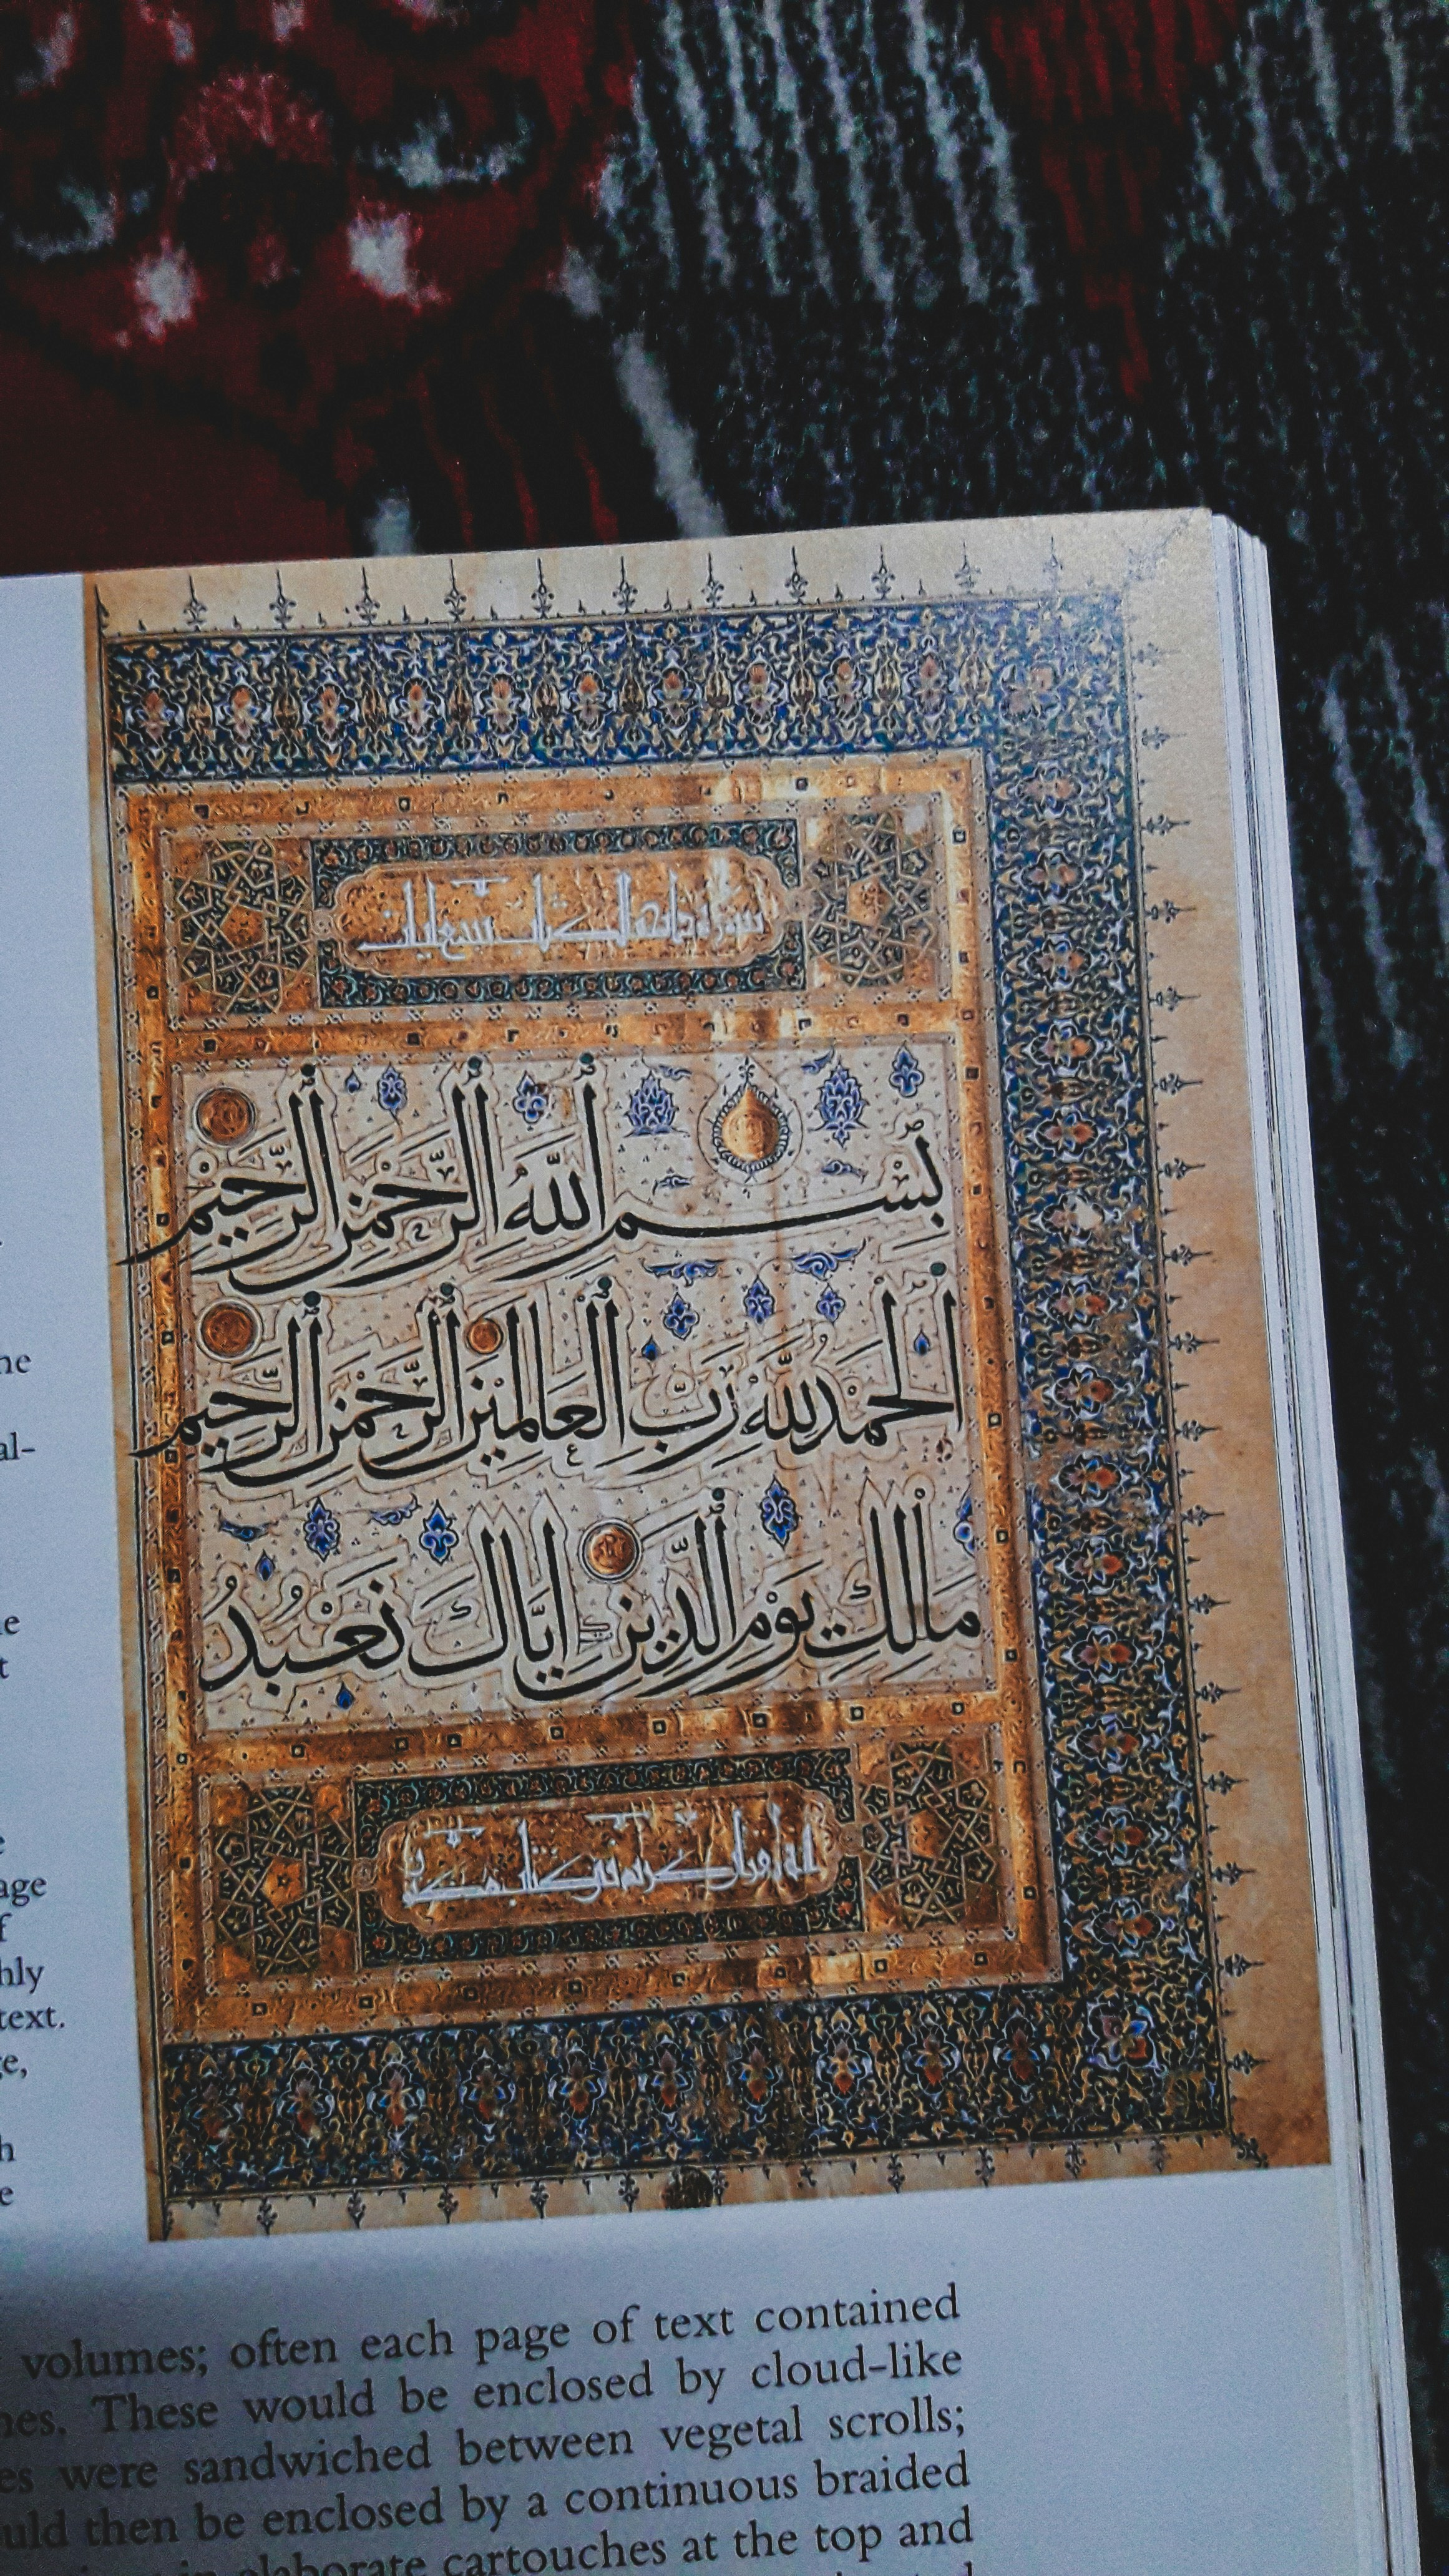 سورة فاتحة الكتاب سبع ايات
بِسْمِ ٱللَّهِ ٱلرَّحْمٰنِ ٱلرَّحِيمِ
ٱلْحَمْدُ لِلَّهِ رَبِّ ٱلْعَالَمِينَ ٱلرَّحْمٰنِ ٱلرَّحِيمِ
مَالِكِ يَوْمِ ٱلدِّينِ اِيَّاكَ نَعْبُدُ
انه لقران كريم في كتاب مكنون
he
al-
le
t
age
f
hly
text.
e,
h
e
volumes; often each page of text contained
These would be enclosed by cloud-like
were sandwiched between vegetal scrolls;
then be enclosed by a continuous braided
in elaborate cartouches at the top and